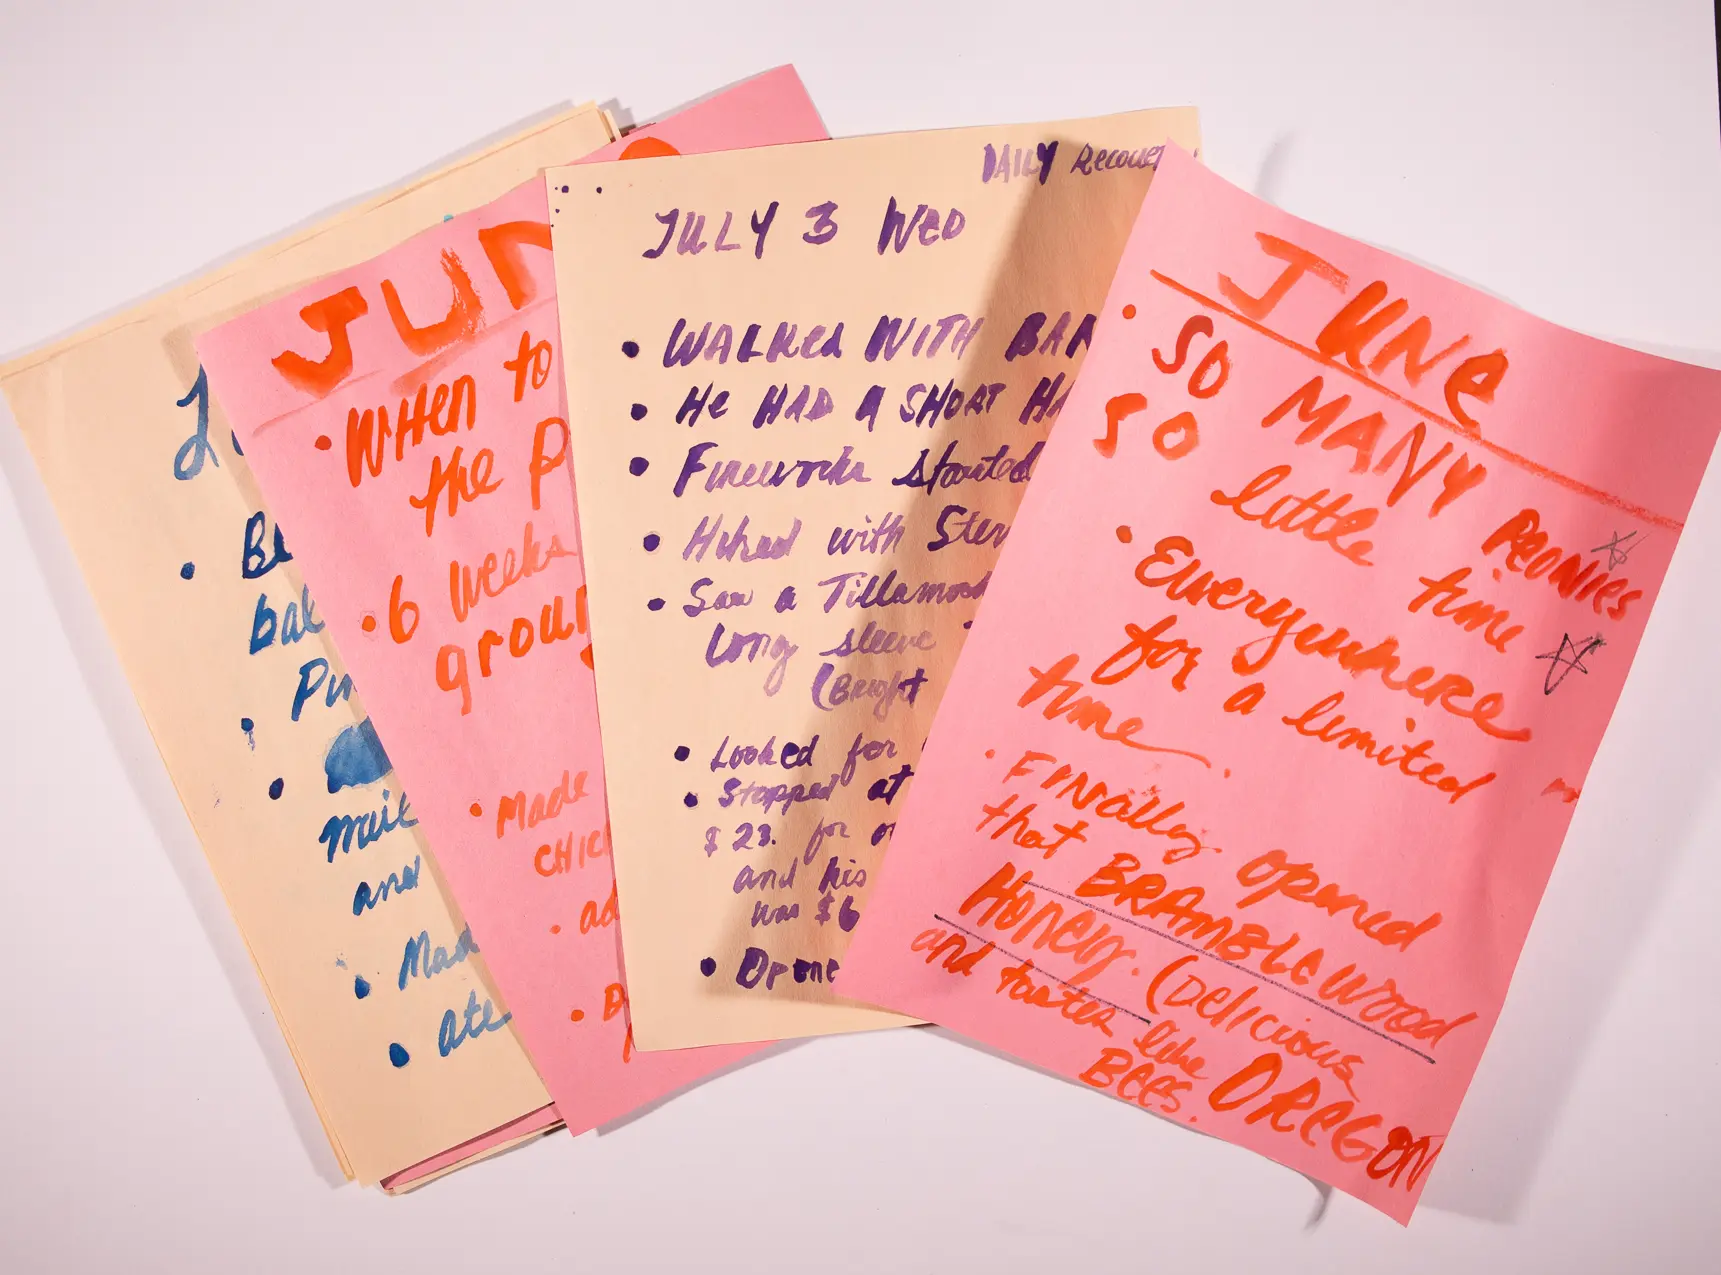 JUN
• WHEN to
the P
• 6 weeks
groun
• Made
CHIC
• ad
bal
mail
and
• Mad
• ate
DAILY Recover
JULY 3 WED
• WALKED WITH BAN
• He HAD A SHORT HA
• Fireworks started
• Hiked with Stev
• Saw a Tillamook
long sleeve
(Bright
• Looked for
• Stopped at
$23. for
and his
was $6
• Opene
JUNE
• SO MANY PEONIES
SO little time
• Everywhere
for a limited
time.
• FINally opened
that BRAMBLEWOOD
Honey. (Delicious
and tastes like OREGON
Bees.